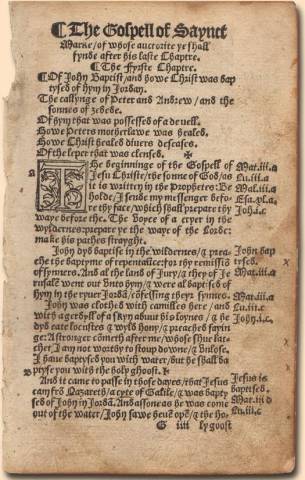 ¶The Gospell of Saynct
Marke/of whose auctorite ye shall
fynde after his laste Chaptre.
¶The fyrste Chaptre.
¶Of John Baptist/and howe Christ was bap
tysed of hym in Jordan.
The callynge of Peter and Andrew/and the
sonnes of zebede.
Of hym that was possessed of a deuell.
Howe Peters motherlawe was healed.
Howe Christ healed diuers deseases.
Of the leper that was clensed.
a
The beginnenge of the Gospell of
Jesu Christe/the sonne of God/as
it is written in the Prophetes: Be
holde/I sende my messenger befo-
re thy face/which shall prepare thy
waye before the. The voyce of a cryer in the
wyldernes: prepare ye the waye of the Lorde:
make his pathes strayght.
Mat.iii.a
Lu.iii.a
Mal.iii.a
Esa.xl.a.
Joh.i.c.
John dyd baptise in the wildernes/& prea-
che the baptyme of repentaunce: for the remissiō
of synnes. And al the lond of Jury/& they of Je
rusalē went out vnto hym/& were al baptised of
hym in the ryuer Jordā/cōfessing theyr synnes.
John was clothed with camilles heare/and
with a gerdyll of a skyn about his loynes/& he
dyd eate locustes & wyld hony/& preached sayin
ge: A stronger cometh after me/whose shue lat-
chet I am not worthy to stoup downe/& vnlose.
I haue baptysed you with water/but he shall ba
ptyse you with the holy ghoost.
John bap
tysed.
Mat.iii.a
Mat.iii.a
Lu.iii.c
John.i.c.
B
And it came to passe in those dayes/that Jesus
cam frō Nazareth/a cyte of Galile/& was bapty
sed of John in Jordā. And assone as he was come
out of the water/John sawe heuē opē/& the ho-
Jesus is
baptised.
Mat.iii.d
Lu.iii.c
G iiii lygoost